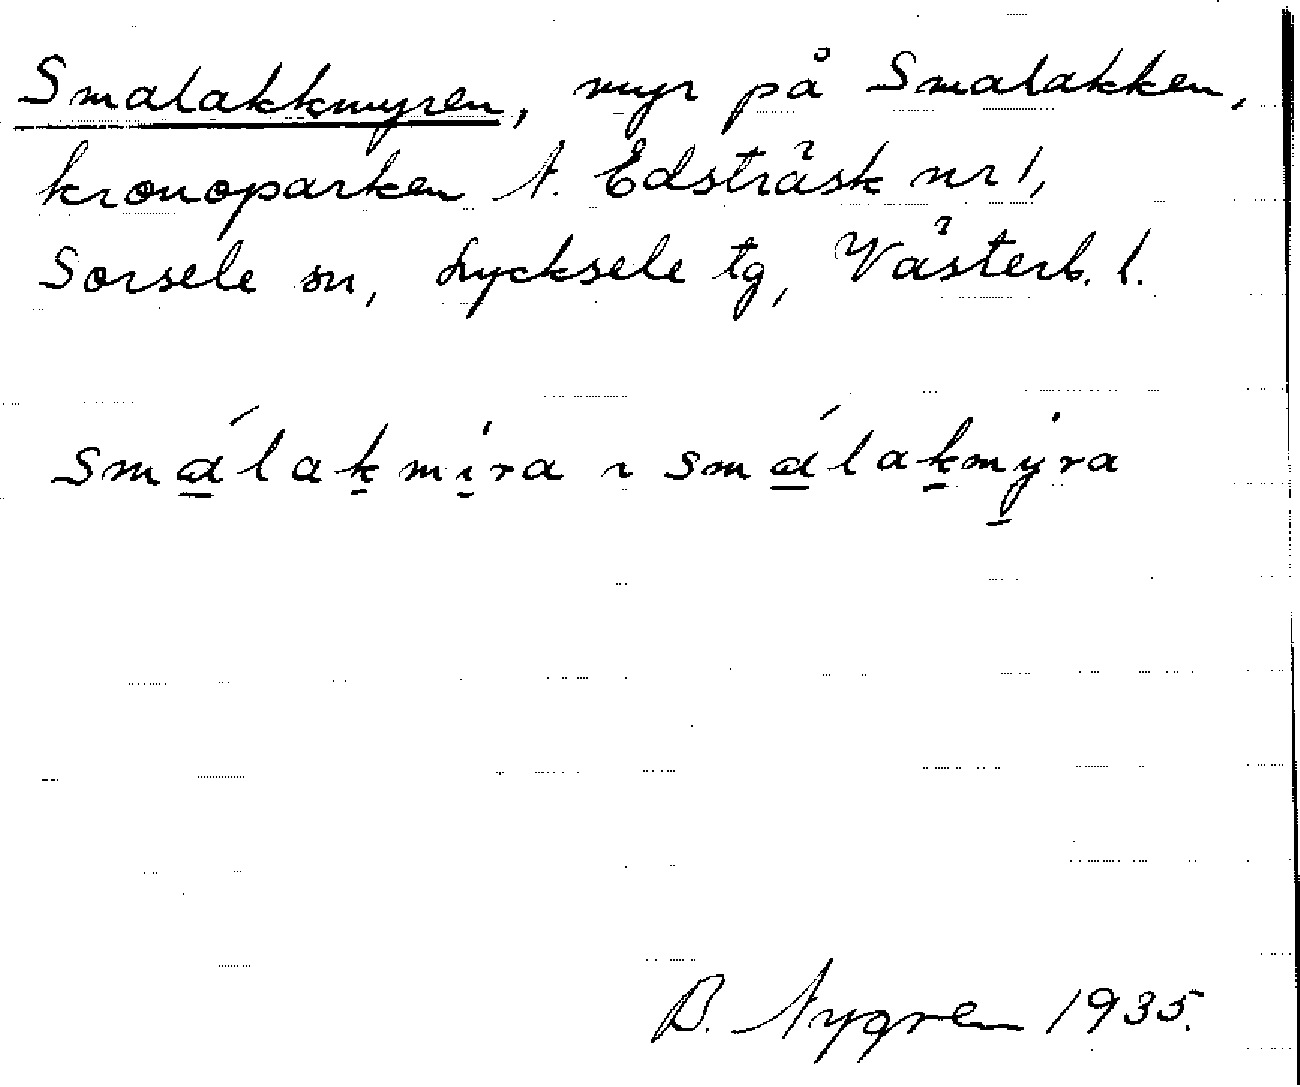 Smalakkmyren, myr på Smalakken,
kronoparken N. Edsträsk nr 1,
Sorsele sn, Lycksele tg, Västerb. l.
smálakmi̍ra ~ smálakmy̍ra
B. Nygren 1935.